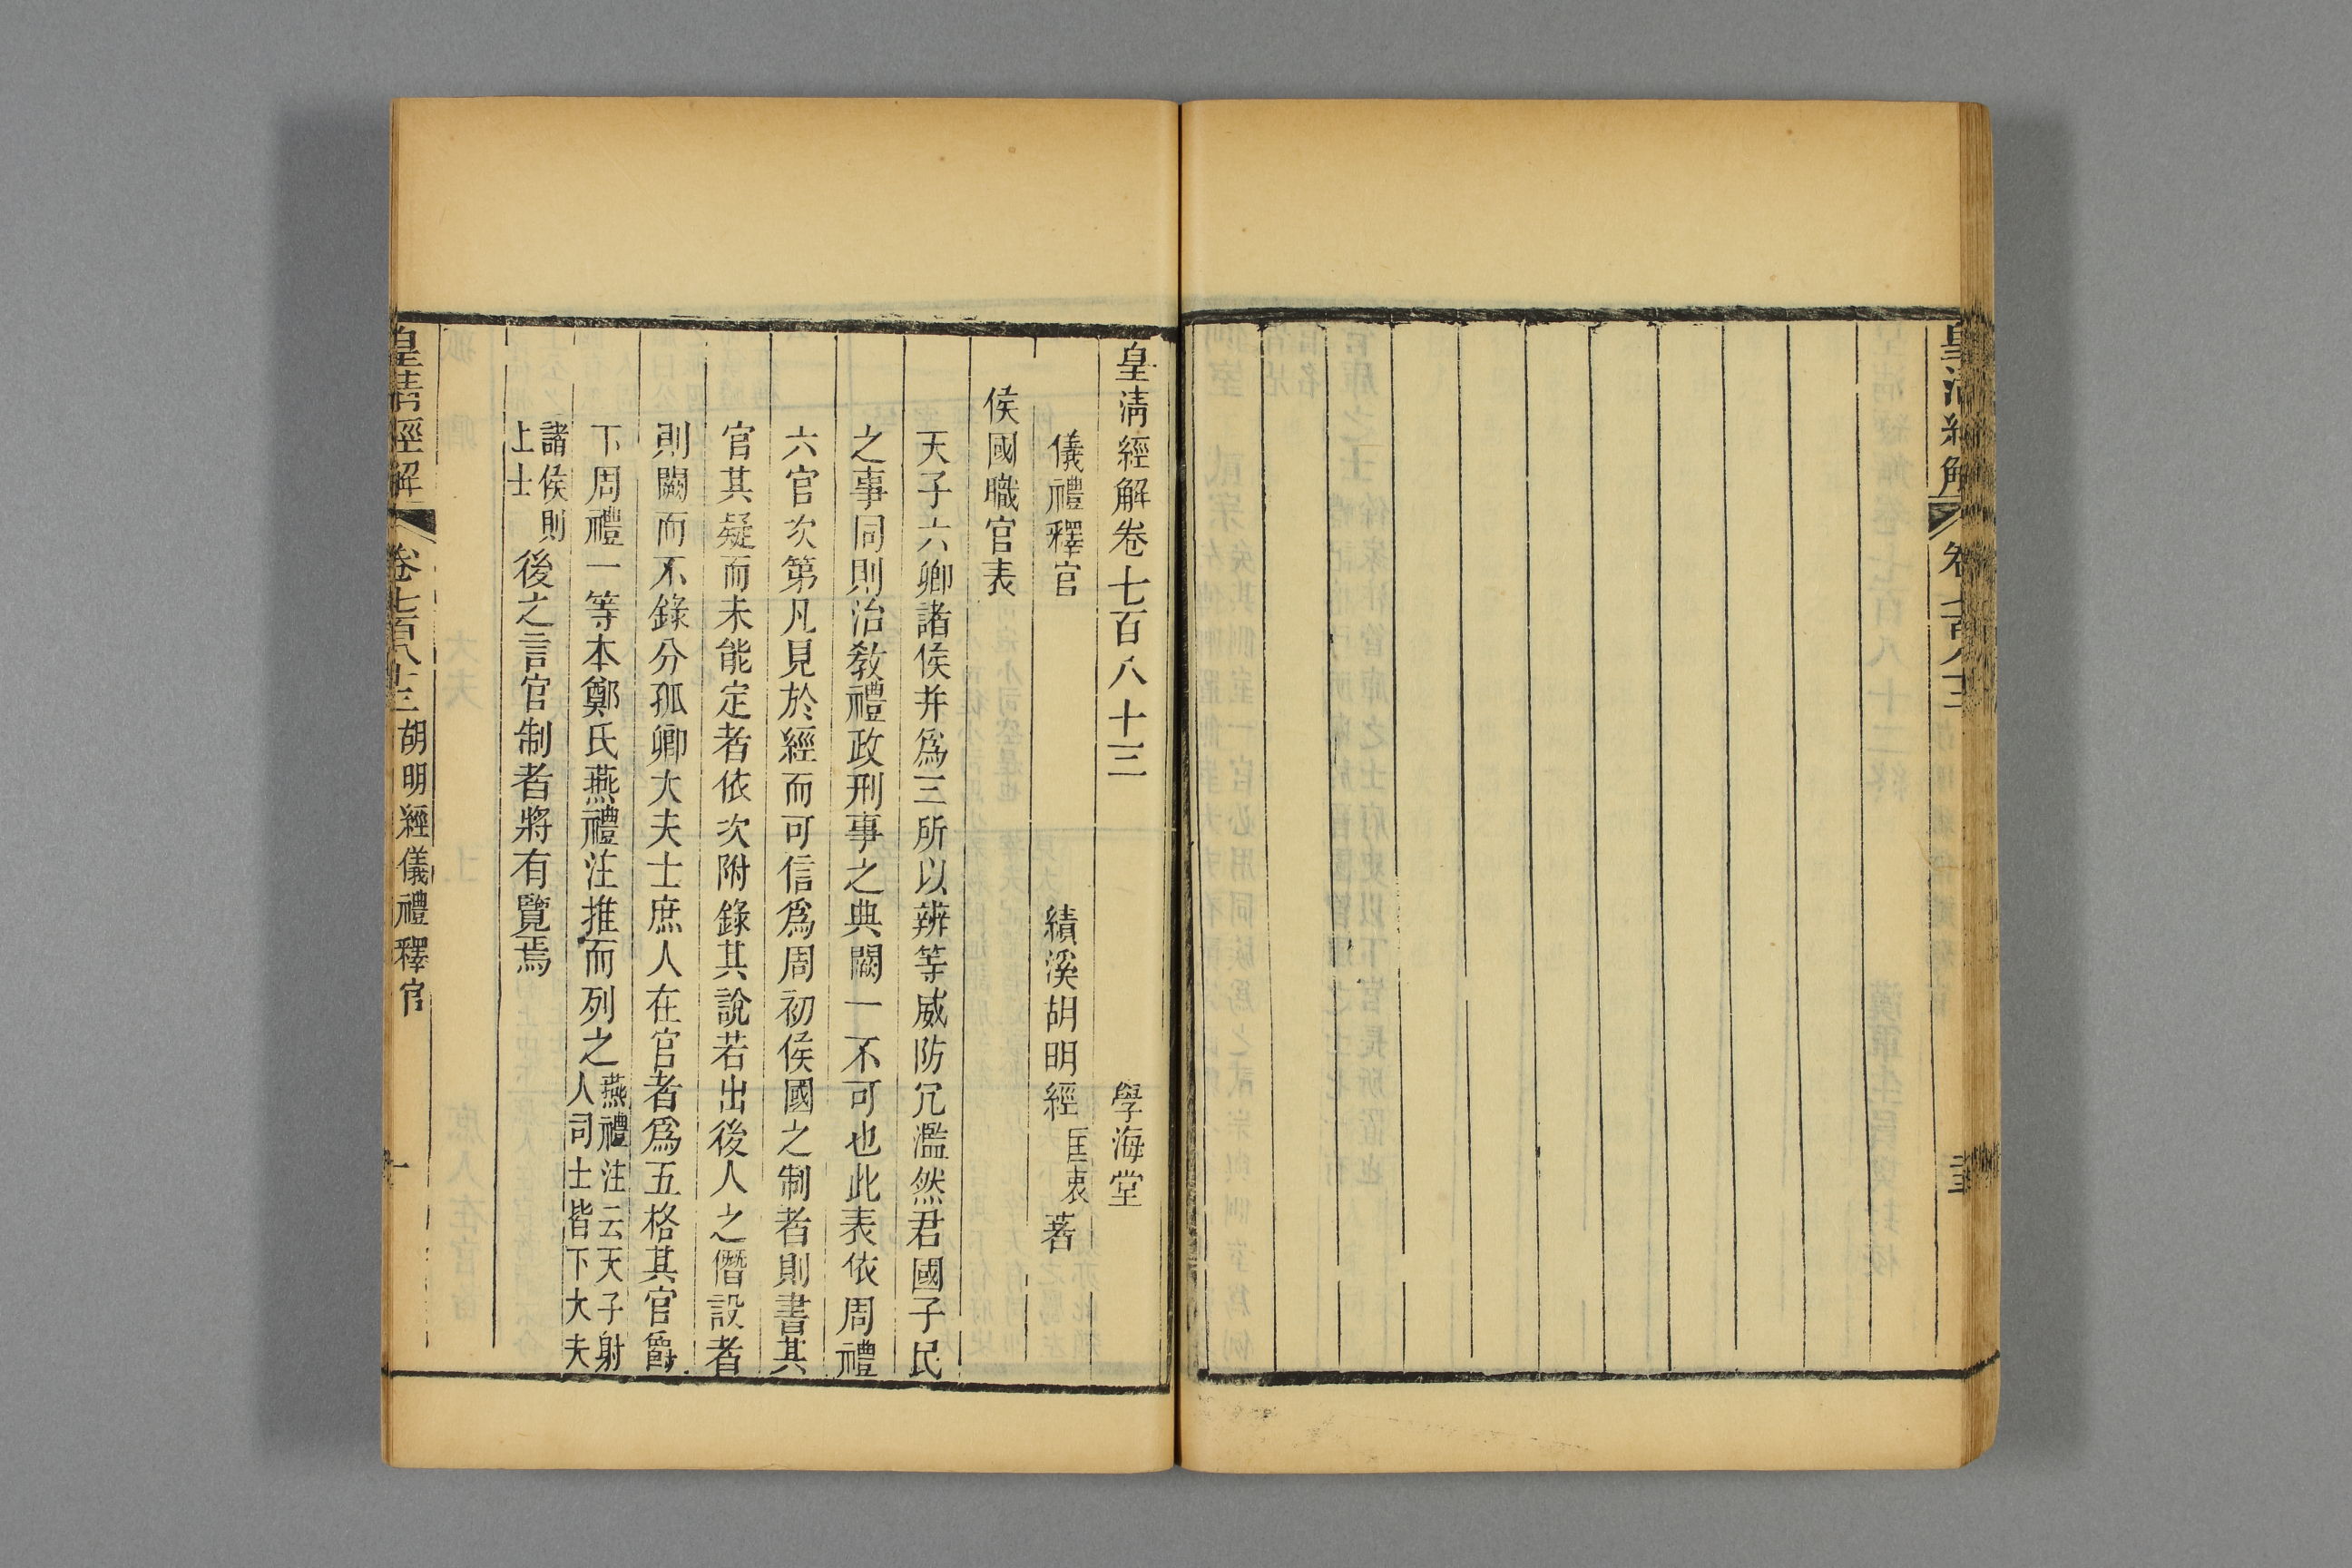 皇清經解卷七百八十三 學海堂
儀禮釋官 績溪胡明經匡衷著
侯國職官表
天子六卿諸侯并爲三所以辨等威防冗濫然君國子民
之事同則治敎禮政刑事之典闕一不可也此表依周禮
六官次第凡見於經而可信爲周初侯國之制者則書其
官其疑而未能定者依次附錄其說若出後人之僭設者
則闕而不錄分孤卿大夫士庶人在官者爲五格其官爵
下周禮一等本鄭氏燕禮注推而列之燕禮注云天子射人司士皆下大夫
諸侯則上士後之言官制者將有覽焉
皇清經解 卷七百八十三 胡明經儀禮釋官 一